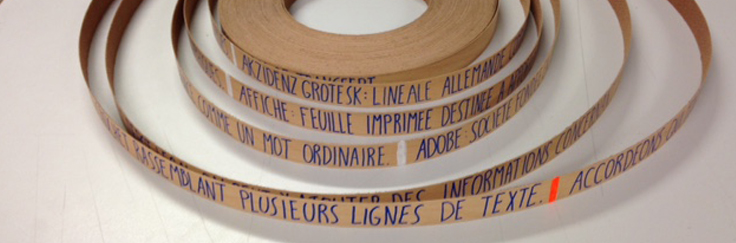 AKZIDENZ GROTESK: LINEALE ALLEMANDE
AFFICHE: FEUILLE IMPRIMÉE DESTINÉE À
COMME UN MOT ORDINAIRE. ADOBE: SOCIÉTÉ
DES INFORMATIONS
RASSEMBLANT PLUSIEURS LIGNES DE TEXTE. ACCORDÉONS